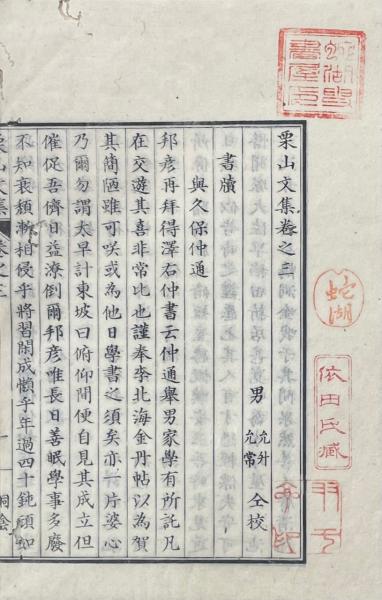 栗山文集卷之三
男 允升 允常 仝校
書牘
與久保仲通
邦彦再拜得澤右仲書云仲通舉男家學有所託凡
在交遊其喜非常比也謹奉李北海金丹帖以為賀
其簡陋雖可咲或為他日學書之須矣亦一片婆心
乃爾勿謂太早計東坡曰俯仰間便自見其成立但
催促吾儕日益潦倒爾邦彦唯長日善眠學事多廢
不知衰頹漸相侵乎將習閑成懶乎年過四十鈍頑如
栗山文集 卷之三
桐陰
蛇湖
依田氏藏